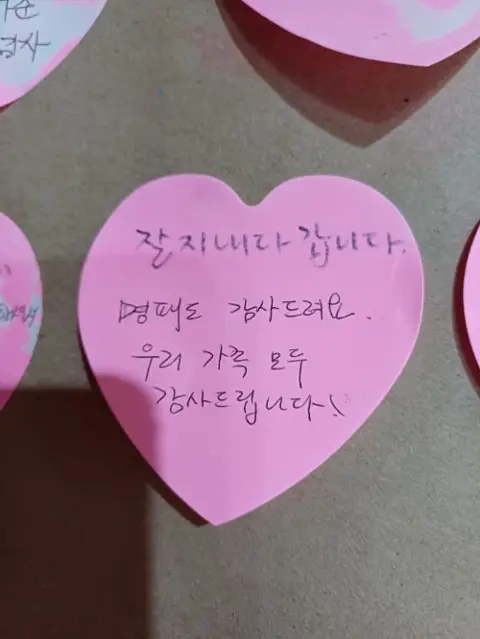 잘 지내다 갑니다.
명패도 감사드려요.
우리 가족 모두
감사드립니다!